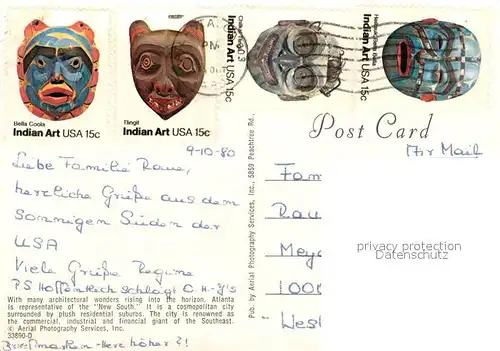 Bella Coola
Indian Art USA 15c
Tlingit
Indian Art USA 15c
Indian Art USA 15c
Indian Art USA 15c
PM
Post Card
Air Mail
9-10-80
Liebe Familie
herzliche Grüße aus dem
Sonnigen Süden der
USA
Viele Grüße Regine
PS Hoffentlich schlägt O.H-J's
With many architectural wonders rising into the horizon, Atlanta
is representative of the "New South." It is a cosmopolitan city
surrounded by plush residential suburbs. The city is renowned as
the commercial, industrial and financial giant of the Southeast.
© Aerial Photography Services, Inc.
33890-D
Briefmarken-Herz höher?!
Pub. by Aerial Photography Services, Inc., 5859 Peachtree Rd.,
Fam
Rau
Mey
1000
West
privacy protection
Datenschutz